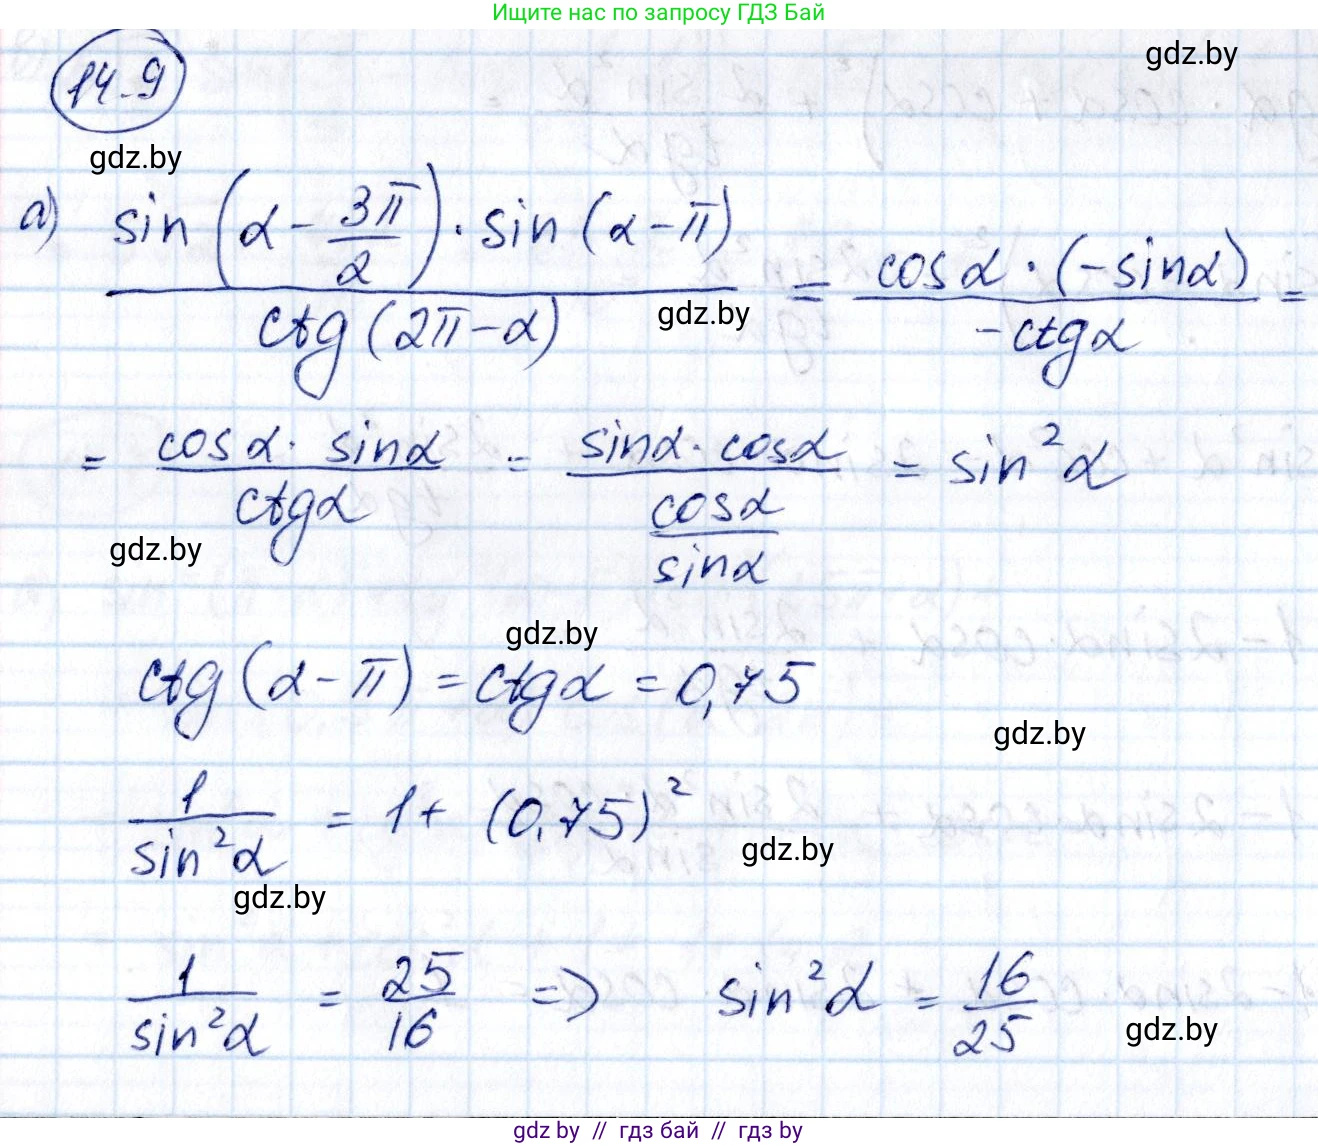 Ищите нас по запросу ГДЗ Бай
gdz.by
14.9
gdz.by
а) sin(α - 3π/2) · sin(α - π) / ctg(2π - α) = cosα · (-sinα) / -ctgα =
gdz.by
= cosα · sinα / ctgα = sinα · cosα / (cosα / sinα) = sin²α
gdz.by
gdz.by
ctg(α - π) = ctgα = 0,75
gdz.by
1 / sin²α = 1 + (0,75)²
gdz.by
gdz.by
1 / sin²α = 25/16 => sin²α = 16/25
gdz.by
gdz.by // гдз бай // гдз by